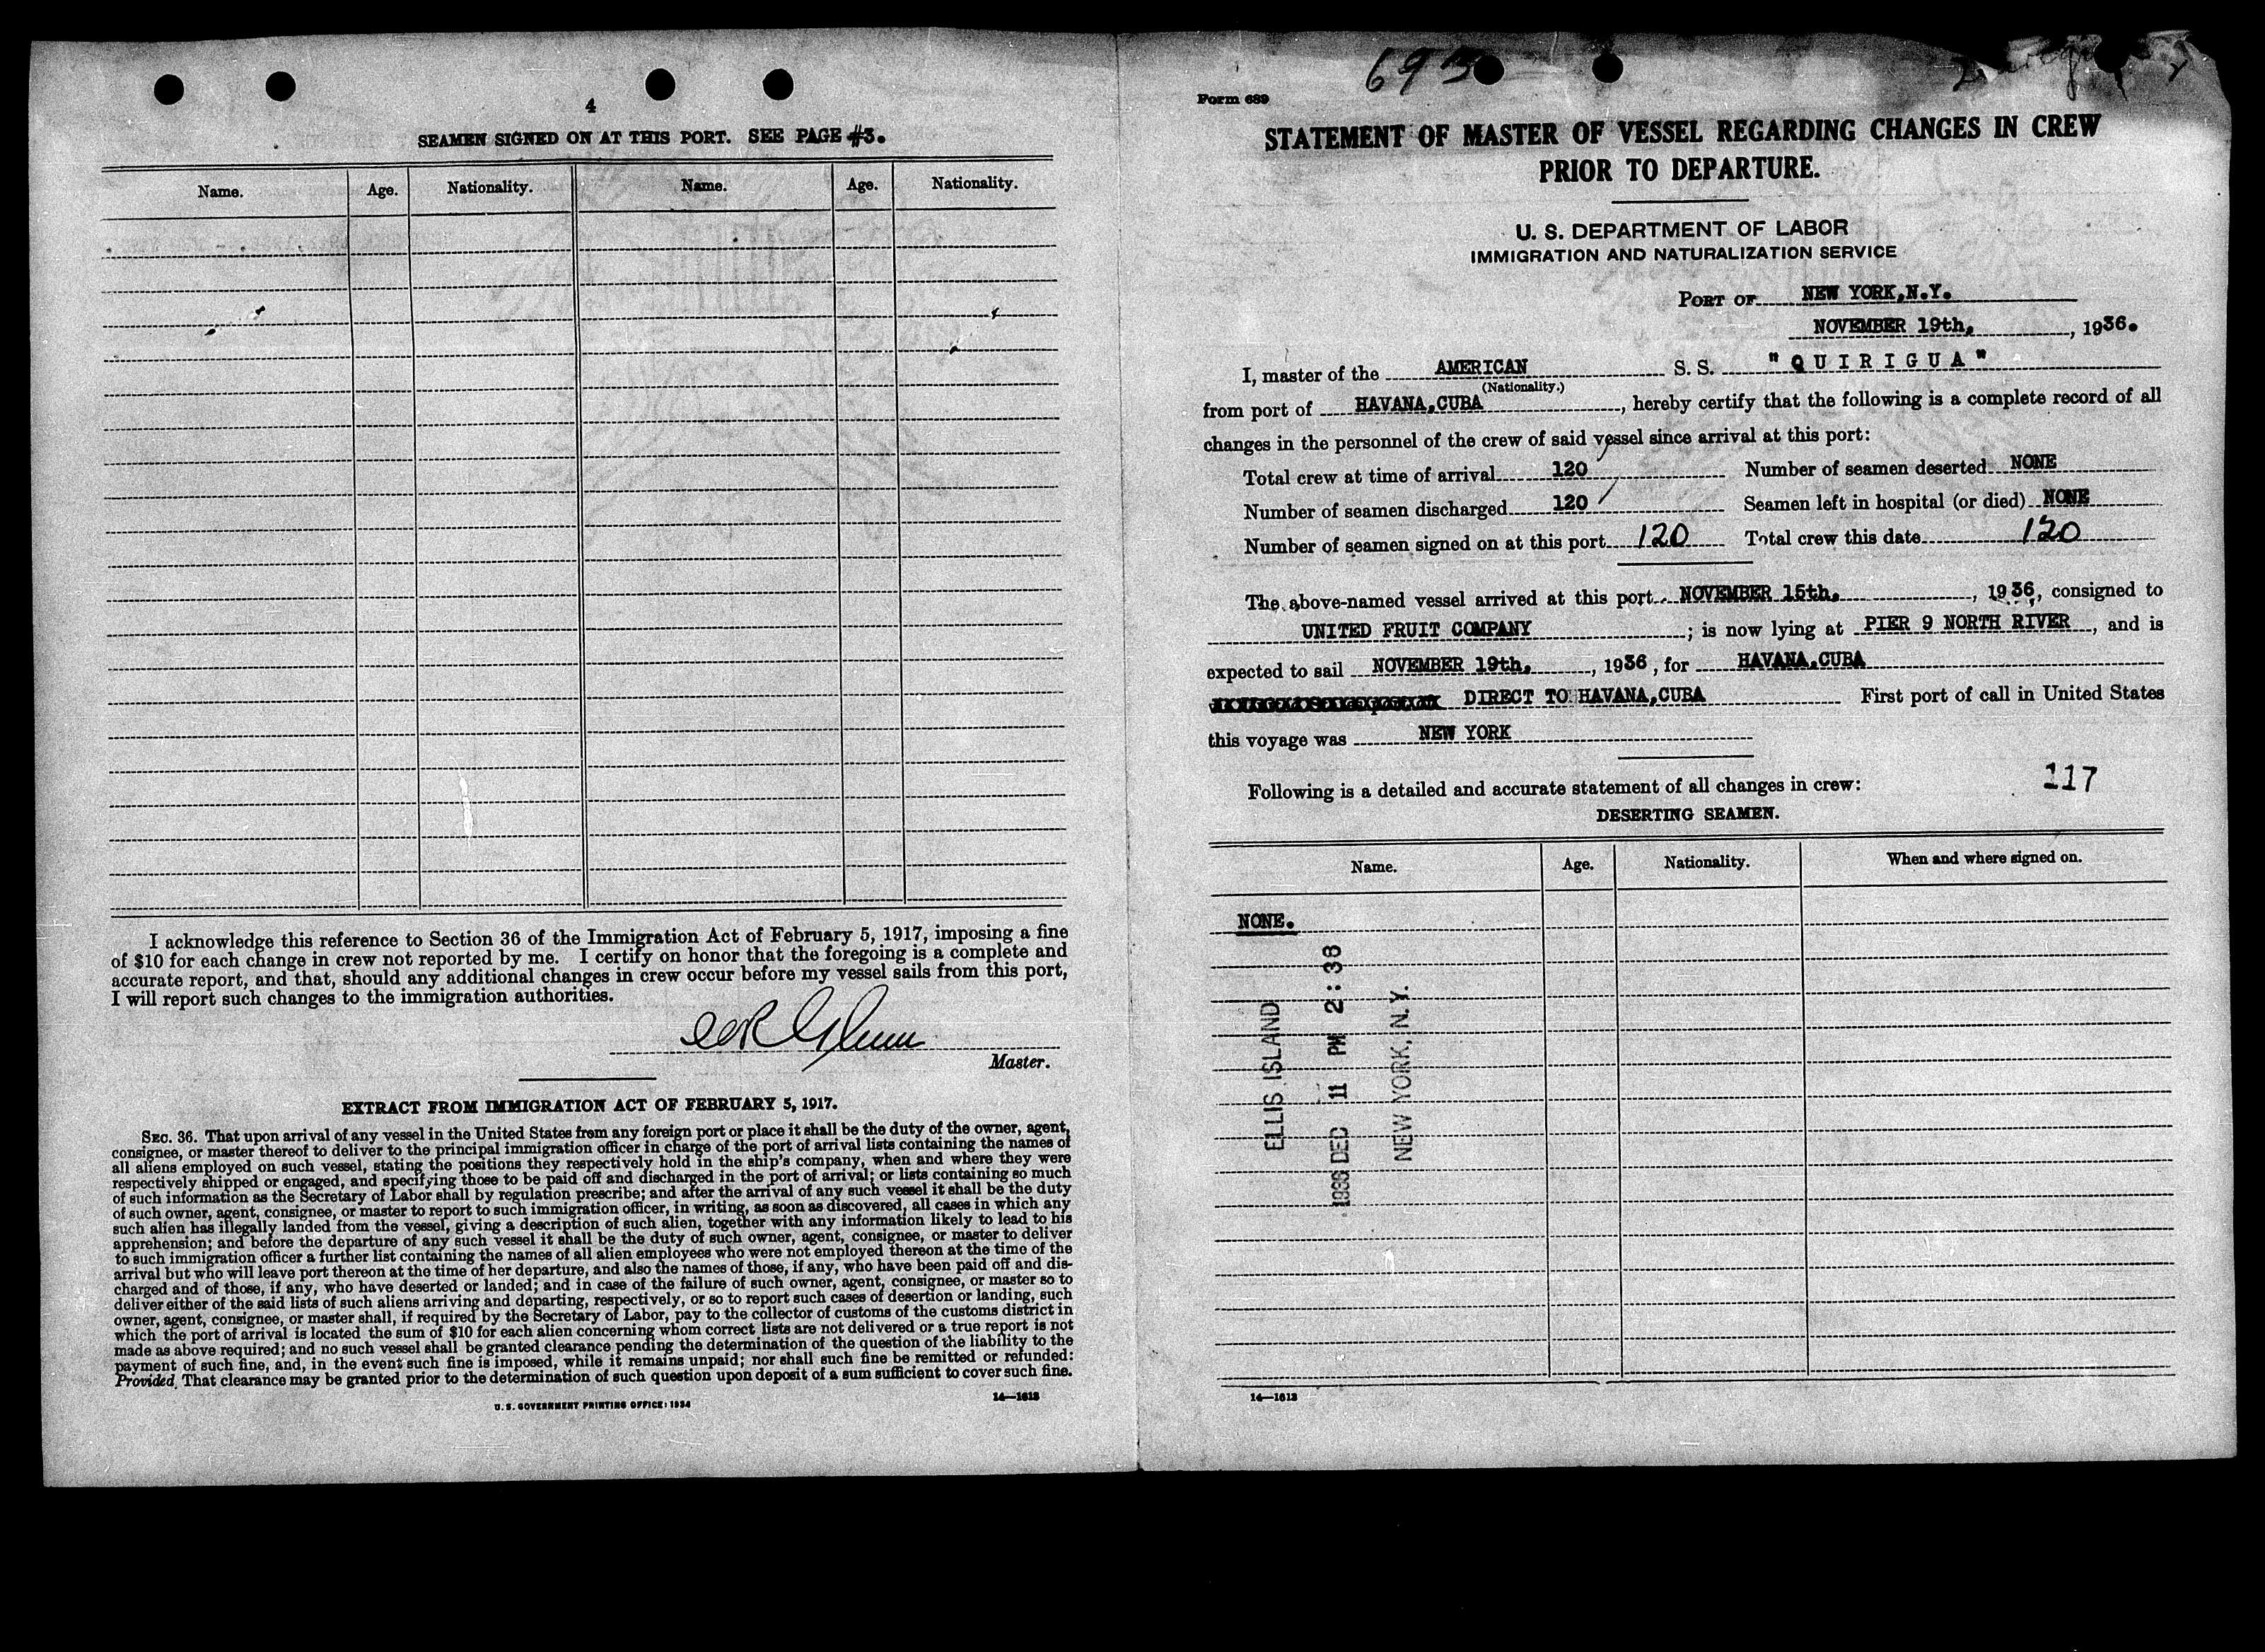 4
SEAMEN SIGNED ON AT THIS PORT. SEE PAGE #3.
Name. Age. Nationality. Name. Age. Nationality.
I acknowledge this reference to Section 36 of the Immigration Act of February 5, 1917, imposing a fine
of $10 for each change in crew not reported by me. I certify on honor that the foregoing is a complete and
accurate report, and that, should any additional changes in crew occur before my vessel sails from this port,
I will report such changes to the immigration authorities.
Glenn
Master.
EXTRACT FROM IMMIGRATION ACT OF FEBRUARY 5, 1917.
SEC. 36. That upon arrival of any vessel in the United States from any foreign port or place it shall be the duty of the owner, agent,
consignee, or master thereof to deliver to the principal immigration officer in charge of the port of arrival lists containing the names of
all aliens employed on such vessel, stating the positions they respectively hold in the ship's company, when and where they were
respectively shipped or engaged, and specifying those to be paid off and discharged in the port of arrival; or lists containing so much
of such information as the Secretary of Labor shall by regulation prescribe; and after the arrival of any such vessel it shall be the duty
of such owner, agent, consignee, or master to report to such immigration officer, in writing, as soon as discovered, all cases in which any
such alien has illegally landed from the vessel, giving a description of such alien, together with any information likely to lead to his
apprehension; and before the departure of any such vessel it shall be the duty of such owner, agent, consignee, or master to deliver
to such immigration officer a further list containing the names of all alien employees who were not employed thereon at the time of the
arrival but who will leave port thereon at the time of her departure, and also the names of those, if any, who have been paid off and dis-
charged and of those, if any, who have deserted or landed; and in case of the failure of such owner, agent, consignee, or master so to
deliver either of the said lists of such aliens arriving and departing, respectively, or so to report such cases of desertion or landing, such
owner, agent, consignee, or master shall, if required by the Secretary of Labor, pay to the collector of customs of the customs district in
which the port of arrival is located the sum of $10 for each alien concerning whom correct lists are not delivered or a true report is not
made as above required; and no such vessel shall be granted clearance pending the determination of the question of the liability to the
payment of such fine, and, in the event such fine is imposed, while it remains unpaid; nor shall such fine be remitted or refunded:
Provided, That clearance may be granted prior to the determination of such question upon deposit of a sum sufficient to cover such fine.
14—1613
U. S. GOVERNMENT PRINTING OFFICE: 1934
693
Form 689
STATEMENT OF MASTER OF VESSEL REGARDING CHANGES IN CREW
PRIOR TO DEPARTURE.
U. S. DEPARTMENT OF LABOR
IMMIGRATION AND NATURALIZATION SERVICE
PORT OF NEW YORK,N.Y.
NOVEMBER 19th, , 1936.
I, master of the AMERICAN S. S. "QUIRIGUA"
(Nationality.)
from port of HAVANA,CUBA , hereby certify that the following is a complete record of all
changes in the personnel of the crew of said vessel since arrival at this port:
Total crew at time of arrival 120 Number of seamen deserted NONE
Number of seamen discharged 120 Seamen left in hospital (or died) NONE
Number of seamen signed on at this port 120 Total crew this date 120
The above-named vessel arrived at this port NOVEMBER 15th, , 1936, consigned to
UNITED FRUIT COMPANY ; is now lying at PIER 9 NORTH RIVER , and is
expected to sail NOVEMBER 19th, , 1936, for HAVANA,CUBA
DIRECT TO HAVANA,CUBA First port of call in United States
this voyage was NEW YORK
Following is a detailed and accurate statement of all changes in crew:
117
DESERTING SEAMEN.
Name. Age. Nationality. When and where signed on.
NONE.
ELLIS ISLAND
1936 DEC 11 PM 2:38
NEW YORK, N.Y.
14—1613